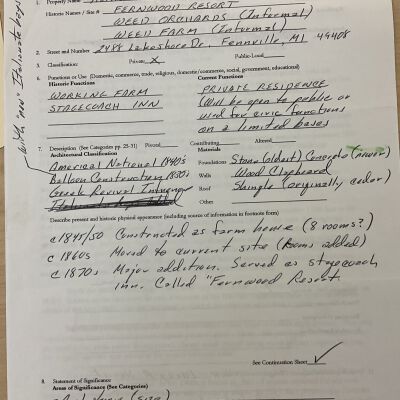 1. Property Name
Historic Names / Site # FERNWOOD RESORT
WEED ORCHARDS (Informal)
WEED FARM (Informal)
2. Street and Number 2488 Lakeshore Dr. Fennville, MI 49408
3. Classification: Private X Public-Local
6. Functions or Use (Domestic, commerce, trade, religious, domestic/commerce, social, government, educational)
Historic Functions Current Functions
WORKING FARM PRIVATE RESIDENCE
STAGECOACH INN Will be open to public or
used for civic functions
on a limited basis
7. Description (See Categories pp. 25-31) Pivotal Contributing Altered
Architectural Classification Materials
America National 1840's Foundations Stone Concrete (newer)
Balloon Construction 1830's Walls Wood Clapboard
Greek Revival Roof Shingle (originally cedar)
Other
Describe present and historic physical appearance (including source of information in footnote form)
c 1845/50 Constructed as farm home (8 rooms?)
c 1860s Moved to current site (Rooms added)
c 1870s Major addition. Served as stagecoach
inn. Called "Fernwood Resort.
See Continuation Sheet
8. Statement of Significance
Areas of Significance (See Categories)
with "new" Italianate